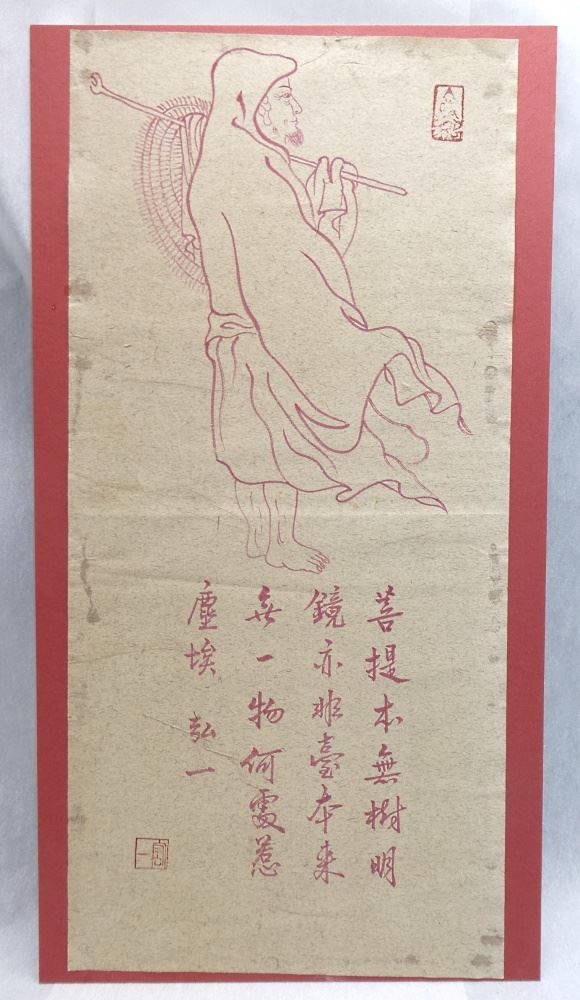 菩提本無樹明
鏡亦非臺本来
無一物何處惹
塵埃 弘一